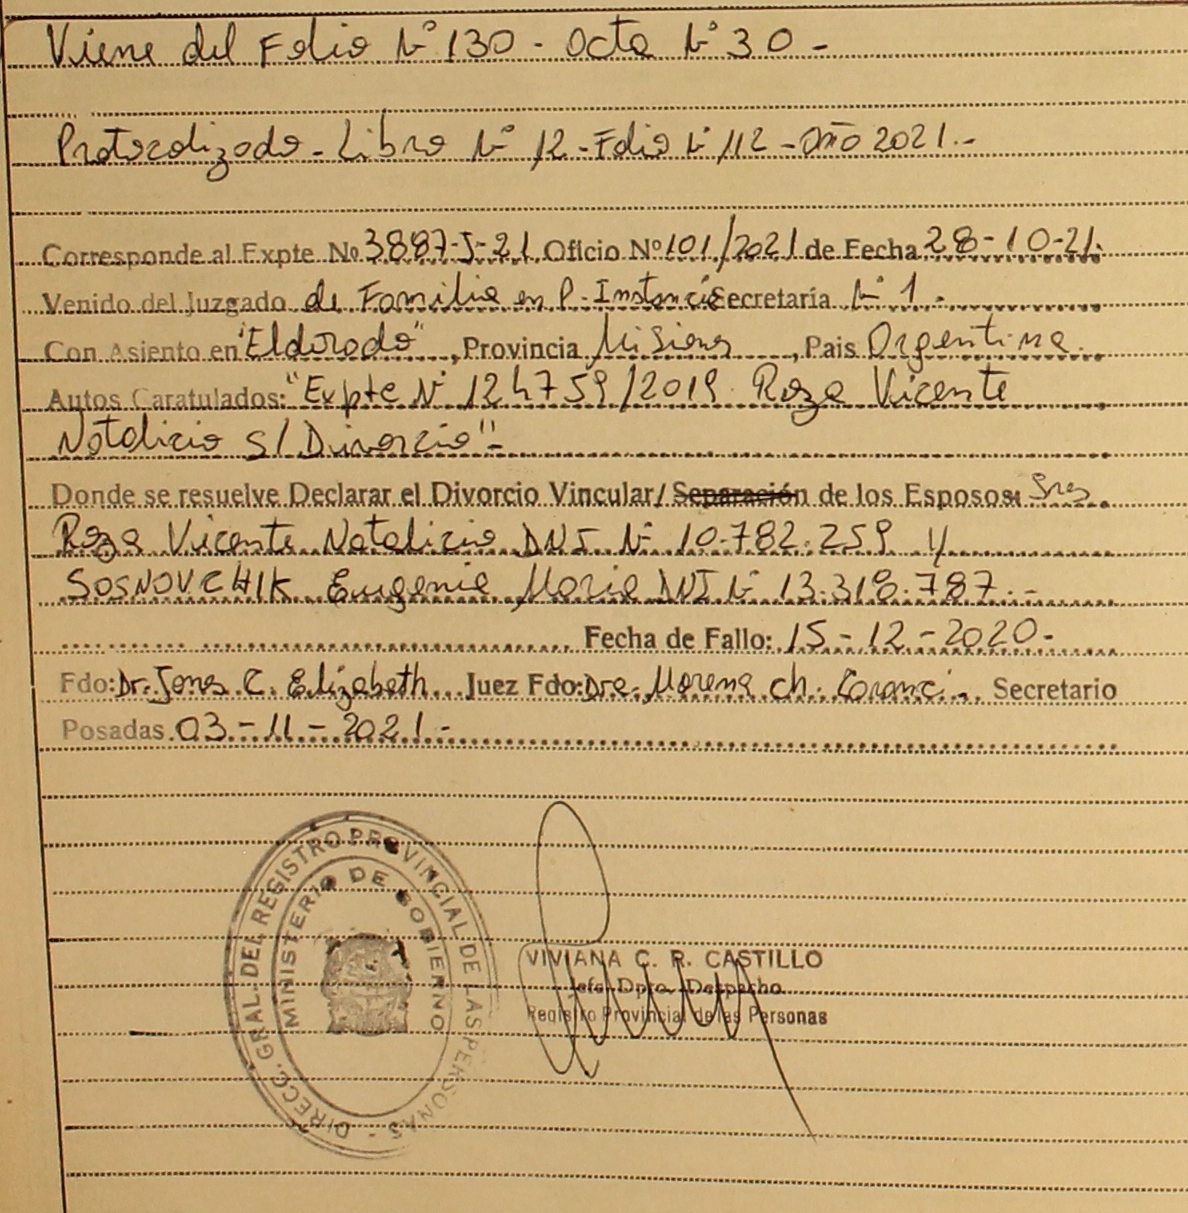 Viene del Folio Nº 130 - Acta Nº 30 -
Protocolizado - Libro Nº 12 - Folio Nº 112 - Año 2021.-
Corresponde al Expte No 3887-J-21 Oficio Nº 101/2021 de Fecha 28-10-21.
Venido del Juzgado de Familia en P. Instancia Secretaría Nº 1 -
Con Asiento en "Eldorado", Provincia Misiones, Pais Argentina.
Autos Caratulados: "Expte Nº 124759/2019 Roza Vicente
Natalicio S/ Divorcio"-
Donde se resuelve Declarar el Divorcio Vincular/ Separación de los Esposos: Sres.
Roza Vicente Natalicio DNI Nº 10.782.259 y
SOSNOVCHIK Eugenia Maria DNI Nº 13.318.787.-
Fecha de Fallo: 15-12-2020-
Fdo: Dr. C. Elizabeth Juez Fdo: Dra. Morena Ch. Secretario
Posadas 03-11-2021.-
DIRECC. GRAL. DEL REGISTRO PROVINCIAL DE LAS PERSONAS -
MINISTERIO DE GOBIERNO
VIVIANA C. R. CASTILLO
Jefe Dpto. Despacho
Registro Provincial de las Personas